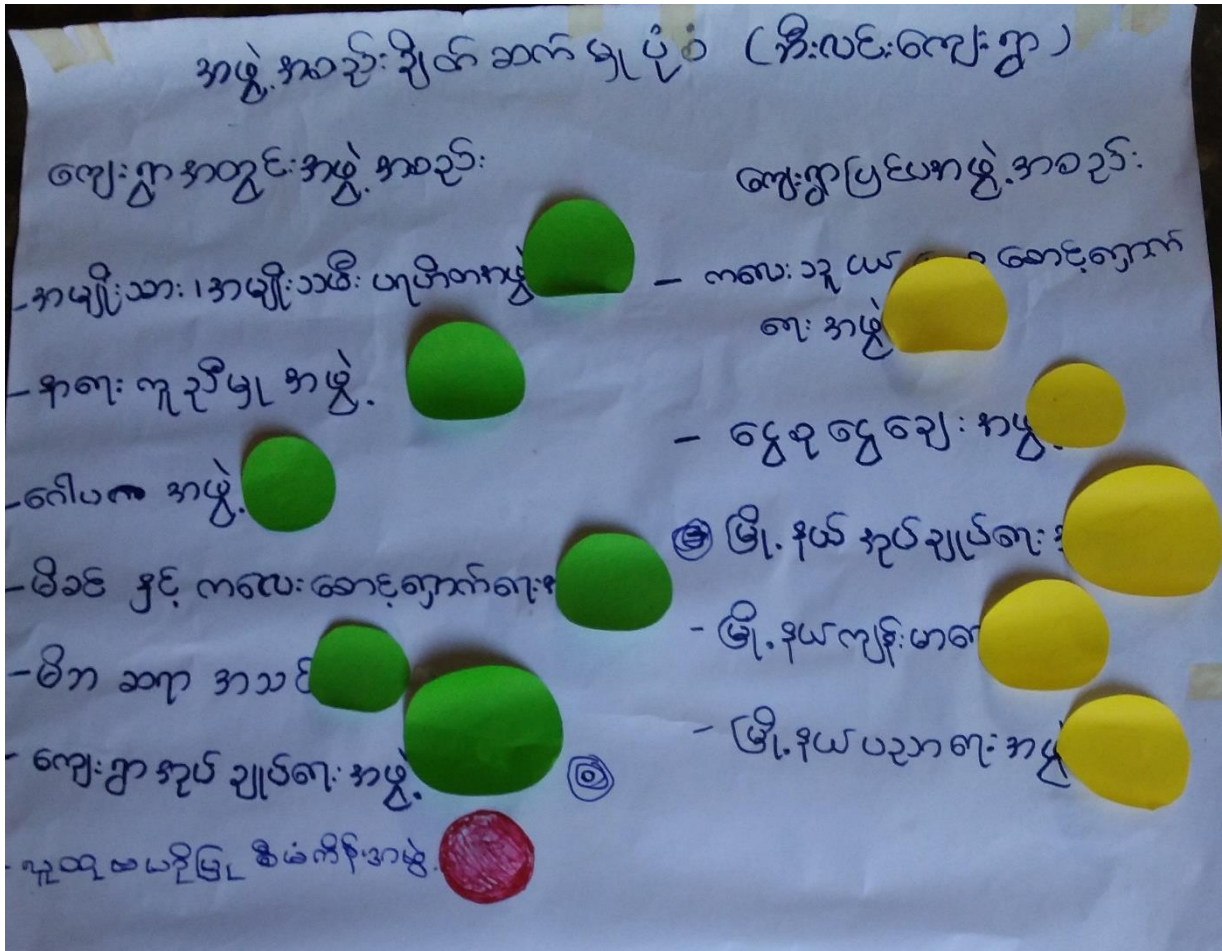 အဖွဲ့အစည်းချိတ်ဆက်မှုပုံစံ (ဘီးလင်းကျေးရွာ)
ကျေးရွာအတွင်းအဖွဲ့အစည်း
- အမျိုးသား၊ အမျိုးသမီး ပရဟိတအဖွဲ့
- နာရေး ကူညီမှု အဖွဲ့
- ဂေါပက အဖွဲ့
- မိခင် နှင့် ကလေးစောင့်ရှောက်ရေး
- မိဘ ဆရာ အသင်
- ကျေးရွာအုပ်ချုပ်ရေး အဖွဲ့
- စီမံကိန်းအဖွဲ့
ကျေးရွာပြင်ပအဖွဲ့အစည်း
- ကလေးသူငယ် စောင့်ရှောက်
ရေး အဖွဲ့
- ငွေစုငွေချေး အဖွဲ့
မြို့နယ် အုပ်ချုပ်ရေး
- မြို့နယ်ကျန်းမာရေ
- မြို့နယ်ပညာရေးအဖွဲ့